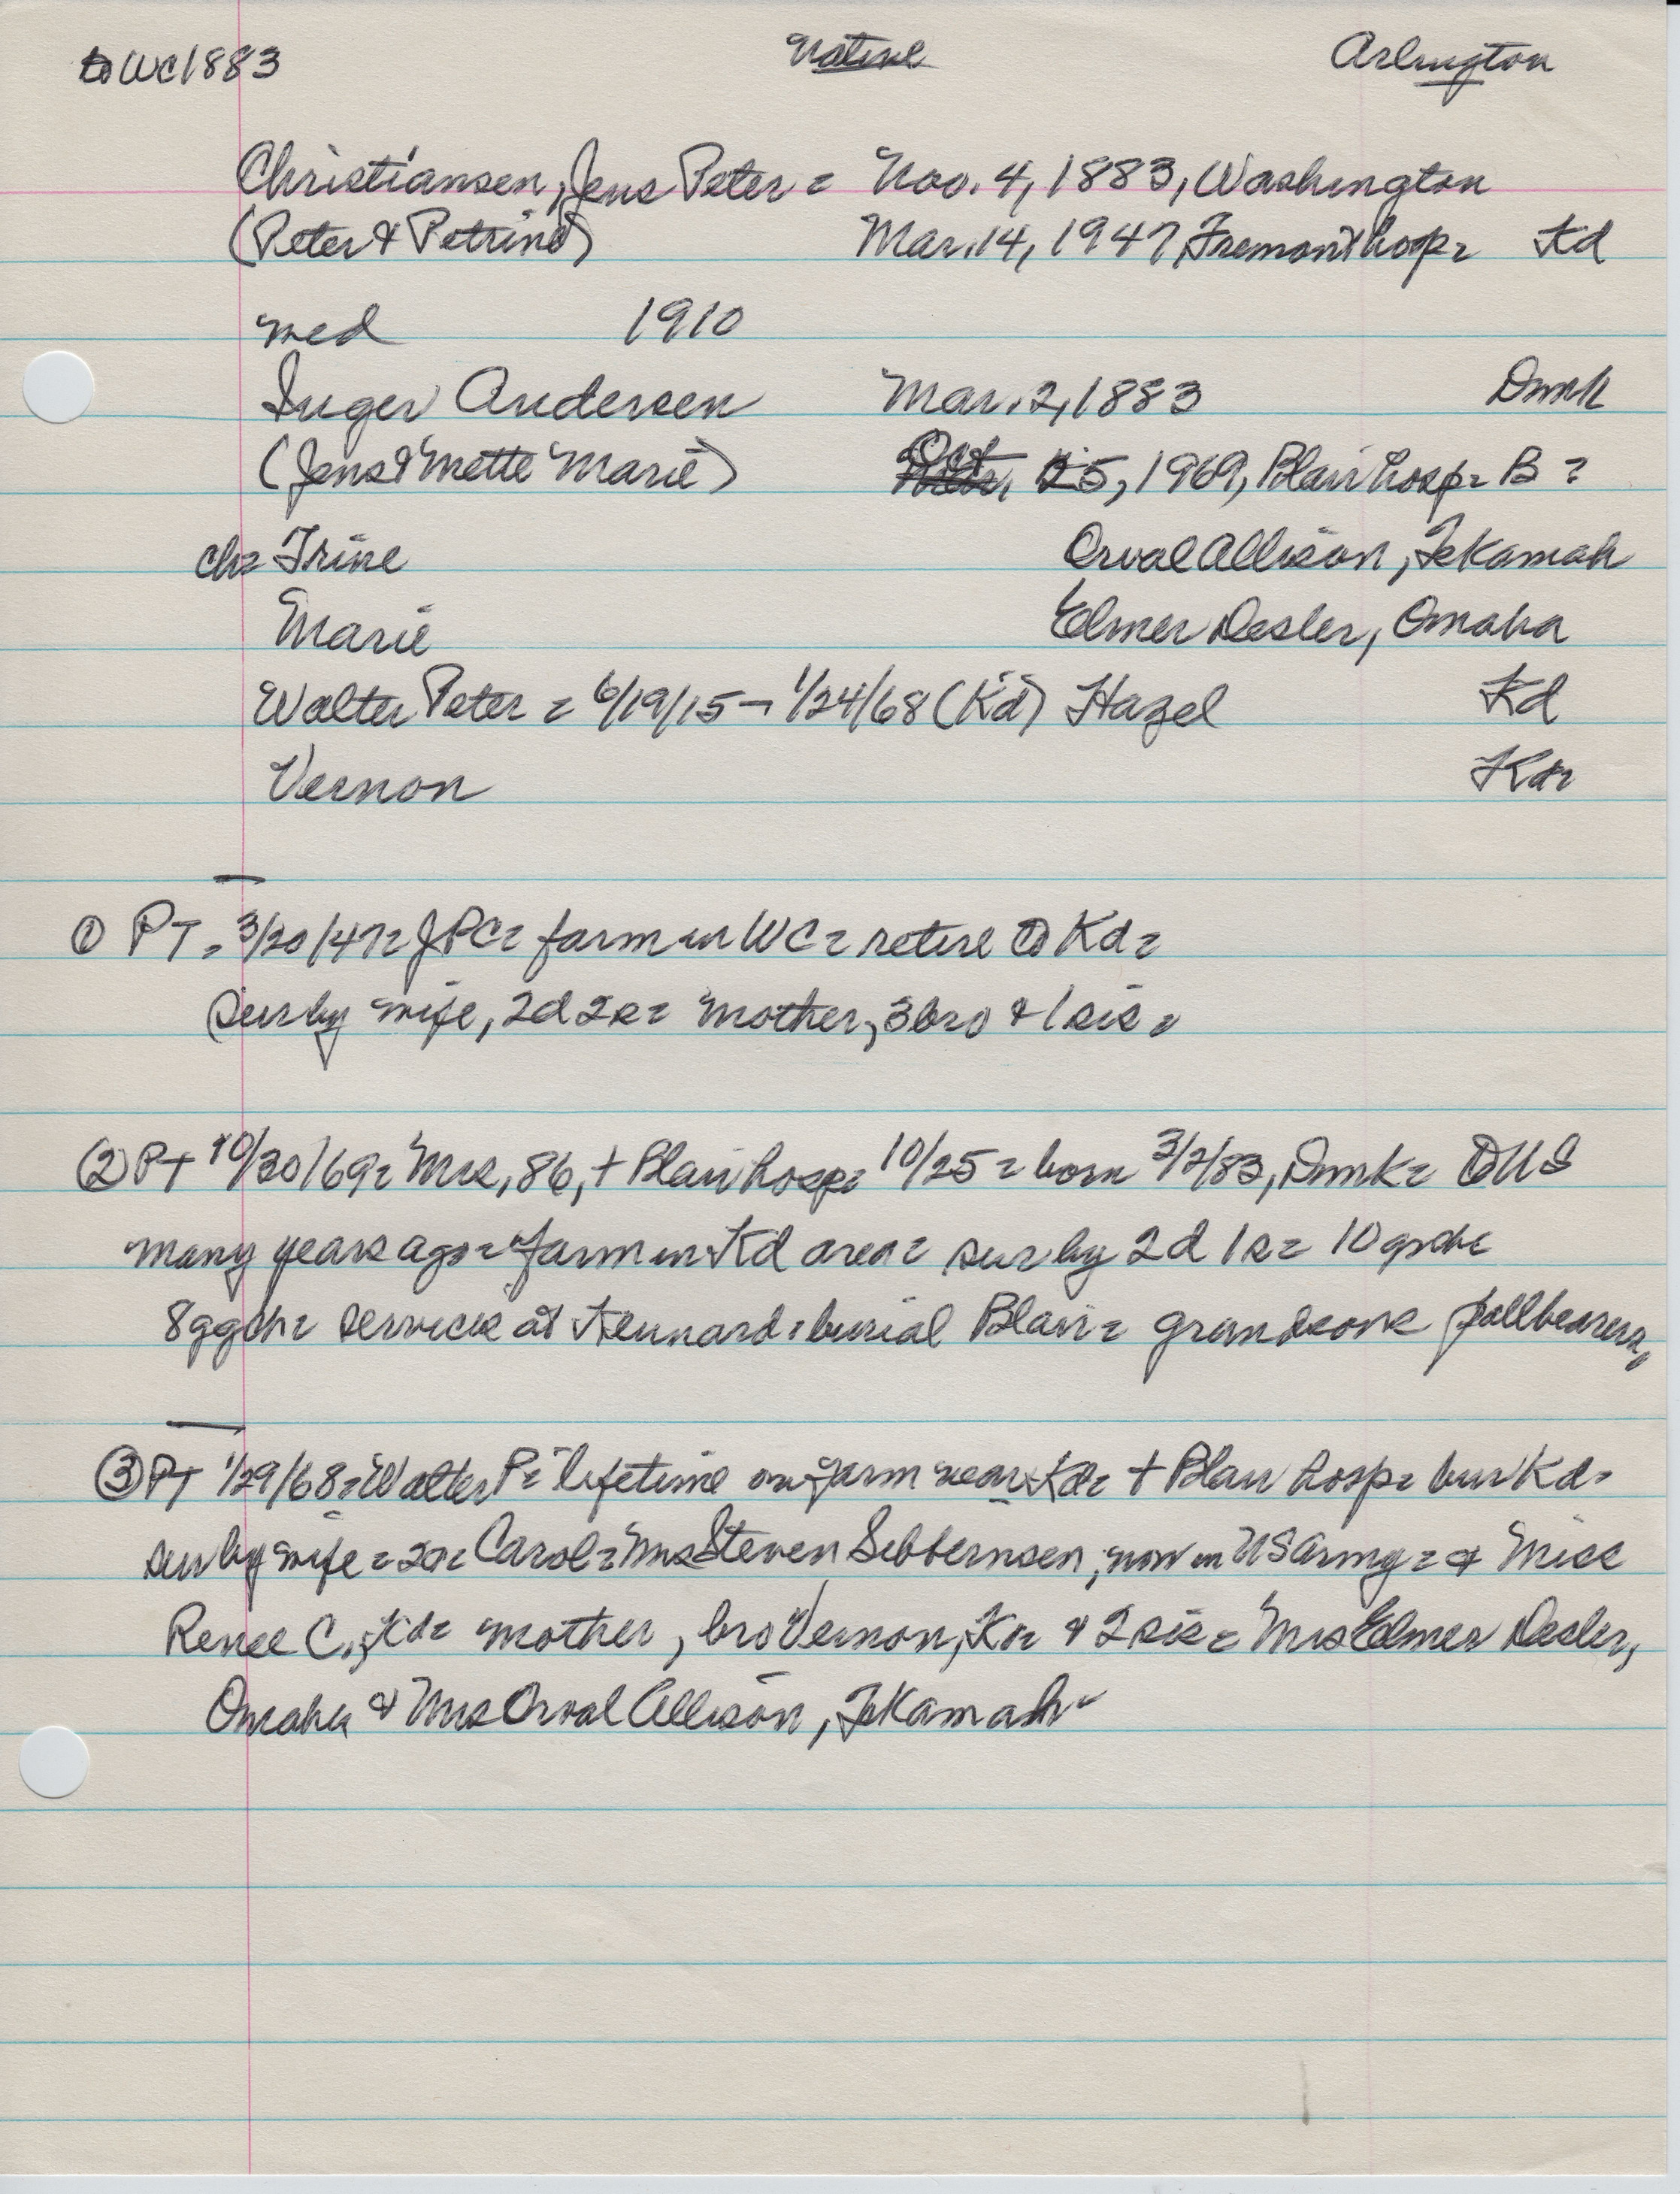 to WC 1883 Native Arlington
Christiansen, Jens Peter = Nov. 4, 1883, Washington
(Peter & Petrine) Mar. 14, 1947, Fremont hosp = Kd
med 1910
Inger Andersen Mar. 2, 1883 Dmrk
(Jens & Mette Marie) Oct. 25, 1969, Blair hosp = B =
ch = Trine Orval Allison, Tekamah
Marie Elmer Desler, Omaha
Walter Peter = 6/19/15 - 1/24/68 (Kd) Hazel Kd
Vernon
① PT = 3/20/47 = JPC = farm in WC = retire to Kd =
sur by wife, 2d 2s = mother, 3 bro & 1 sis =
② PT 10/30/69 = Mrs, 86, + Blair hosp = 10/25 = born 3/2/83, Dmk = to US
many years ago = farm in Kd area = sur by 2d 1s = 10 grch
8 ggch = services at Kennard = burial Blair = grandsons pallbearers,
③ PT 1/29/68 = Walter P = lifetime on farm near Kd = + Blair hosp = bur Kd =
sur by wife = 2d = Carol = Mrs Steven Sibbernsen, now in US Army = & Miss
Renee C., Kd = mother, bro Vernon, & 2 sis = Mrs Elmer Desler,
Omaha & Mrs Orval Allison, Tekamah